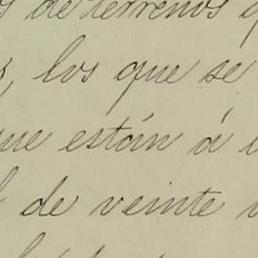 de terrenos
los que se
que están á
de veinte